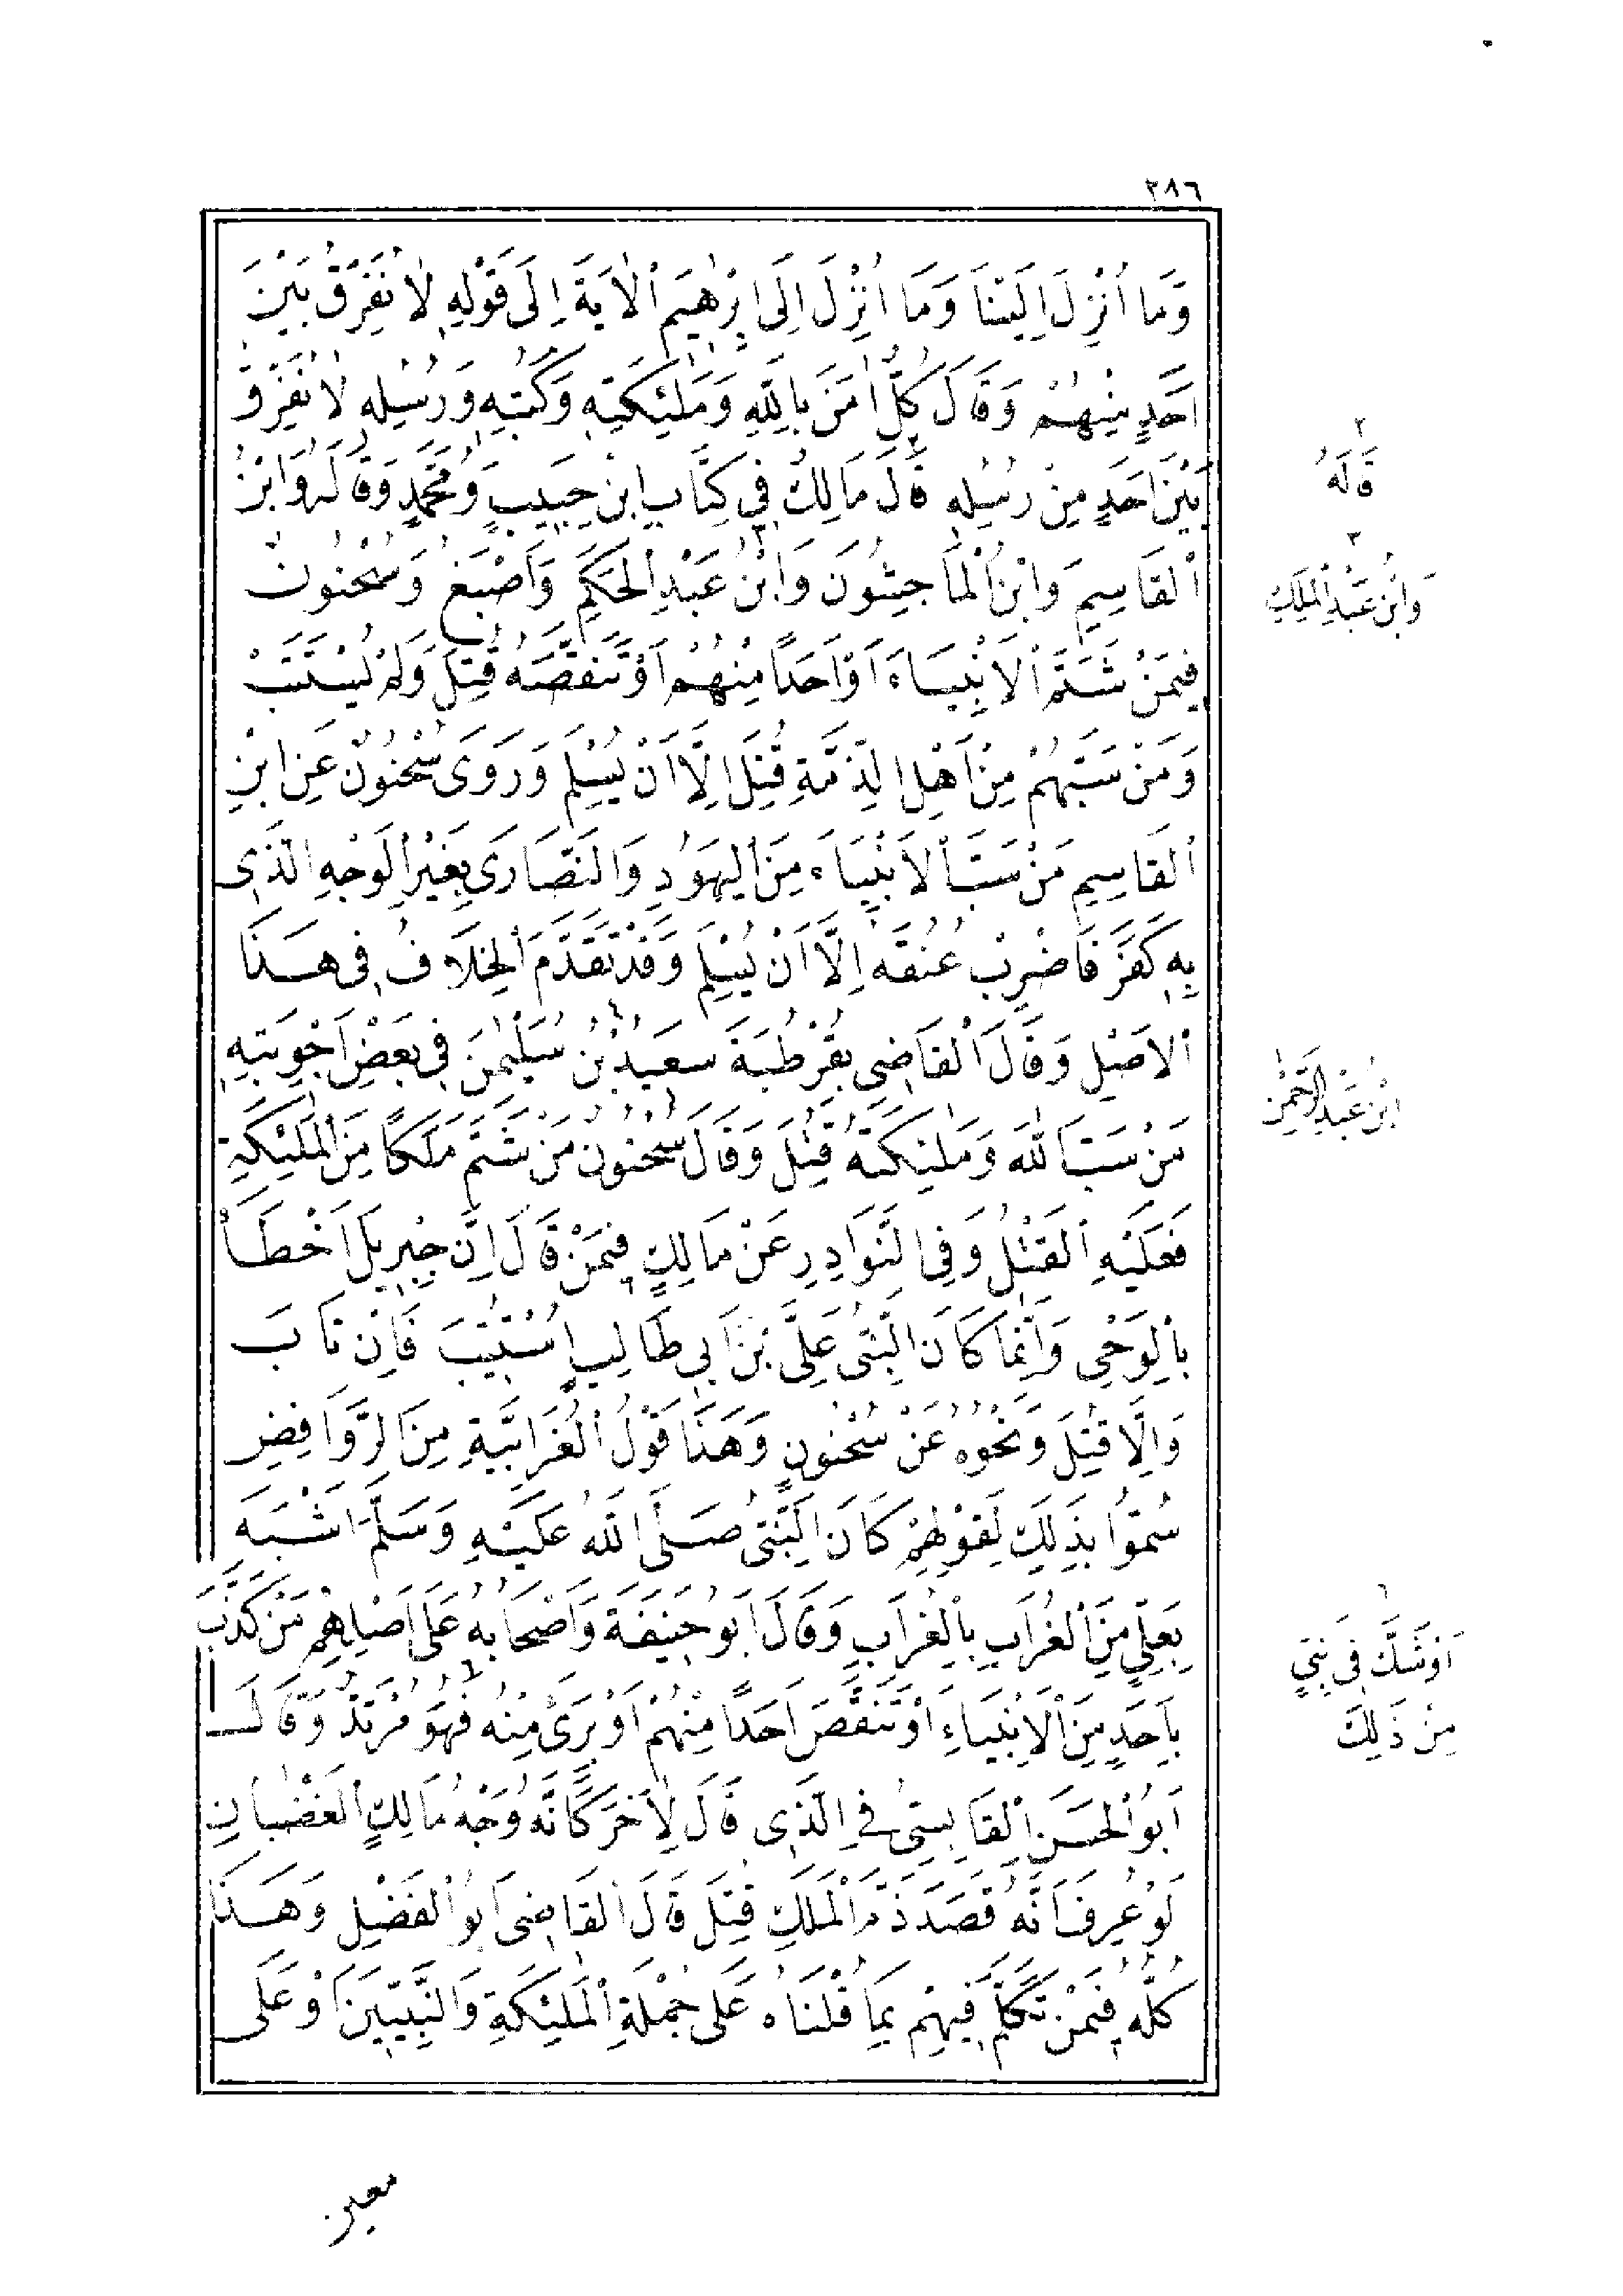 ٢٨٦
وَمَا اُنْزِلَ اِلَيْنَا وَمَا اُنْزِلَ اِلَى اِبْرٰهِيمَ اْلاٰيَةَ اِلَى قَوْلِهِ لاٰ نُفَرِّقُ بَيْنَ
اَحَدٍ مِنْهُمْ وَقَالَ كُلٌّ اٰمَنَ بِاللّٰهِ وَمَلٰئِكَتِهِ وَكُتُبِهِ وَرُسُلِهِ لاٰ نُفَرِّقُ
بَيْنَ اَحَدٍ مِنْ رُسُلِهِ قَالَ مَالِكٌ فِي كِتَابِ ابْنِ حَبِيبٍ وَمُحَمَّدٍ وَقَالَهُ ابْنُ
اْلقَاسِمِ وَابْنُ اْلمَاجِشُونَ وَابْنُ عَبْدِ اْلحَكَمِ وَاَصْبَغُ وَسُحْنُونٌ
فِيمَنْ شَتَمَ اْلاَنْبِيَاءَ اَوْ اَحَداً مِنْهُمْ اَوْ تَنَقَّصَهُ قُتِلَ وَلَمْ يُسْتَتَبْ
وَمَنْ سَبَّهُمْ مِنْ اَهْلِ الذِّمَّةِ قُتِلَ اِلَّا اَنْ يُسْلِمَ وَرَوَى سُحْنُونٌ عَنِ ابْنِ
اْلقَاسِمِ مَنْ سَبَّ اْلاَنْبِيَاءَ مِنَ اْليَهُودِ وَالنَّصَارَى بِغَيْرِ اْلوَجْهِ الَّذِى
بِهِ كَفَرَ فَاضْرِبْ عُنُقَهُ اِلَّا اَنْ يُسْلِمَ وَقَدْ تَقَدَّمَ اْلخِلَافُ فِى هٰذَا
اْلاَصْلِ وَقَالَ اْلقَاضِى بِقُرْطُبَةَ سَعِيدُ بْنُ سُلَيْمٰنَ فِى بَعْضِ اَجْوِبَتِهِ
مَنْ سَبَّ اللّٰهَ وَمَلٰئِكَتَهُ قُتِلَ وَقَالَ سُحْنُونٌ مَنْ شَتَمَ مَلَكاً مِنَ اْلمَلٰئِكَةِ
فَعَلَيْهِ اْلقَتْلُ وَفِى النَّوَادِرِ عَنْ مَالِكٍ فِيمَنْ قَالَ اِنَّ جِبْرِيلَ اَخْطَأَ
بِاْلوَحْىِ وَاِنَّمَا كَانَ النَّبِىُّ عَلِىَّ بْنَ اَبِى طَالِبٍ اسْتُتِيبَ فَاِنْ تَابَ
وَاِلَّا قُتِلَ وَنَحْوُهُ عَنْ سُحْنُونٍ وَهٰذَا قَوْلُ اْلغُرَابِيَّةِ مِنَ الرَّوَافِضِ
سُمُّوا بِذٰلِكَ لِقَوْلِهِمْ كَانَ النَّبِىُّ صَلَّى اللّٰهُ عَلَيْهِ وَسَلَّمَ اَشْبَهَ
بِعَلِىٍّ مِنَ اْلغُرَابِ بِاْلغُرَابِ وَقَالَ اَبُو حَنِيفَةَ وَاَصْحَابُهُ عَلَى اَصْلِهِمْ مَنْ كَذَّبَ
بِاَحَدٍ مِنَ اْلاَنْبِيَاءِ اَوْ تَنَقَّصَ اَحَداً مِنْهُمْ اَوْ بَرِئَ مِنْهُ فَهُوَ مُرْتَدٌّ وَقَالَ
اَبُو اْلحَسَنِ اْلقَابِسِىُّ فِى الَّذِى قَالَ لِاٰخَرَ كَاَنَّهُ وَجْهُ مَالِكٍ اْلغَضْبَانِ
لَوْ عُرِفَ اَنَّهُ قَصَدَ ذَمَّ اْلمَلَكِ قُتِلَ قَالَ اْلقَاضِى اَبُو اْلفَضْلِ وَهٰذَا
كُلُّهُ فِيمَنْ تَكَلَّمَ فِيهِمْ بِمَا قُلْنَاهُ عَلَى جُمْلَةِ اْلمَلٰئِكَةِ وَالنَّبِيِّينَ اَوْ عَلَى
٢
قَالَهُ
٣
وَابْنُ عَبْدِ اْلمَلِكِ
ابْنِ عَبْدِ الرَّحْمٰنِ
٦
اَوْ شَكَّ فِى نَبِىٍّ
مِنْ ذٰلِكَ
معين